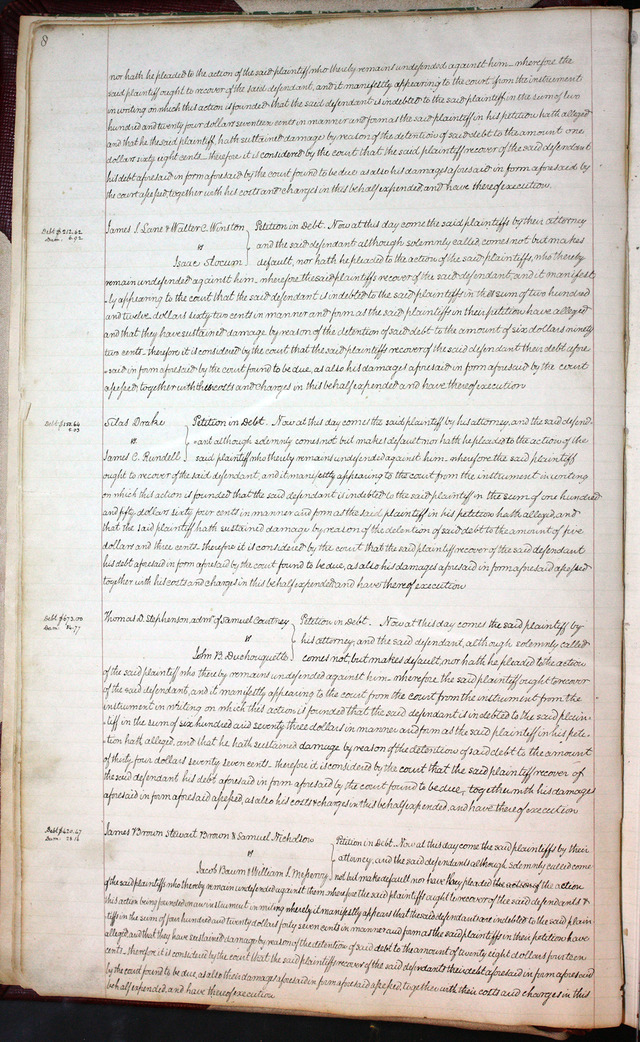 8
nor hath he pleaded to the action of the said plaintiff who thereby remains undefended against him – wherefore the
said plaintiff ought to recover of the said defendant, and it manifestly appearing to the court from the instrument
in writing on which this action is founded that the said defendant is indebted to the said plaintiff in the sum of two
hundred and twenty four dollars seventeen cents in manner and form as the said plaintiff in his petition hath alleged
and that he the said plaintiff, hath sustained damage by reason of the detention of said debt to the amount one
dollar sixty eight cents – therefore it is considered by the court that the said plaintiff recover of the said defendant
his debt aforesaid in form aforesaid by the court found to be due as also his damages aforesaid in form aforesaid by
the court assessed, together with his costs and charges in this behalf expended, and have thereof execution.
Debt $212.62
Dam. 6.92
James S Lane & Walter C. Winston
vs
Isaac Slocum
Petition in Debt. Now at this day come the said plaintiffs by their attorney
and the said defendant although solemnly called, comes not but makes
default, nor hath he pleaded to the action of the said plaintiffs, who thereby
remain undefended against him – wherefore the said plaintiffs recover of the said defendant, and it manifest
-ly appearing to the court that the said defendant is indebted to the said plaintiffs in the sum of two hundred
and twelve dollars sixty two cents in manner and form as the said plaintiffs in their petition have alleged
and that they have sustained damage by reason of the detention of said debt to the amount of six dollars ninety
two cents – therefore it is considered by the court that the said plaintiffs recover of the said defendant their debt afore
-said in form aforesaid by the court found to be due, as also his damages aforesaid in form aforesaid by the court
assessed, together with their costs and charges in this behalf expended and have thereof execution
Debt $150.64
5.03
Silas Drake
vs
James C. Rundell
Petition in Debt. Now at this day comes the said plaintiff by his attorney, and the said defend-
-ant although solemnly comes not but makes default nor hath he pleaded to the action of the
said plaintiff who thereby remains undefended against him – wherefore the said plaintiff
ought to recover of the said defendant, and it manifestly appearing to the court from the instrument in writing
on which this action is founded that the said defendant is indebted to the said plaintiff in the sum of one hundred
and fifty dollars sixty four cents in manner and form as the said plaintiff in his petition hath alleged, and
that the said plaintiff hath sustained damage by reason of the detention of said debt to the amount of five
dollars and three cents – therefore it is considered by the court that the said plaintiff recover of the said defendant
his debt aforesaid in form aforesaid by the court found to be due, as also his damages aforesaid in form aforesaid assessed
together with his costs and charges in this behalf expended and have thereof execution
Debt $673.00
Dam. 34.77
Thomas D. Stephenson, admr of Samuel Courtney
vs
John B. Duchouquette
Petition in Debt. Now at this day comes the said plaintiff by
his attorney, and the said defendant, although solemnly called
comes not, but makes default, nor hath he pleaded to the action
of the said plaintiff who thereby remains undefended against him – wherefore, the said plaintiff ought to recover
of the said defendant, and it manifestly appearing to the court from the court from the instrument from the
instrument in writing on which this action is founded that the said defendant is indebted to the said plain-
tiff in the sum of six hundred and seventy three dollars in manner and form as the said plaintiff in his peti-
tion hath alleged, and that he hath sustained damage by reason of the detention of said debt to the amount
of thirty four dollars seventy seven cents – therefore it is considered by the court that the said plaintiff recover of
the said defendant his debt aforesaid in form aforesaid by the court found to be due, together with his damages
aforesaid in form aforesaid assessed, as also his costs & charges in this behalf expended, and have thereof execution
Debt $420.47
Dam. 28.14
James Brown Stewart Brown & Samuel Nicholson
vs
Jacob Baum & William L
Petition in Debt. Now at this day come the said plaintiffs by their
attorney, and the said defendants although solemnly called come
not but make default nor have they pleaded the action of the action
of the said plaintiffs who thereby remain undefended against them wherefore the said plaintiffs ought to recover of the said defendants &
this action being founded on an instrument in writing whereby it manifestly appears that the said defendants are indebted to the said plain-
tiffs in the sum of four hundred and twenty dollars forty seven cents in manner and form as the said plaintiffs in their petition have
alleged, and that they have sustained damage by reason of the detention of said debt to the amount of twenty eight dollars fourteen
cents – therefore it is considered by the court that the said plaintiffs recover of the said defendants their debt aforesaid in form aforesaid
by the court found to be due, as also their damages aforesaid in form aforesaid assessed, together with their costs and charges in this
behalf expended, and have thereof execution